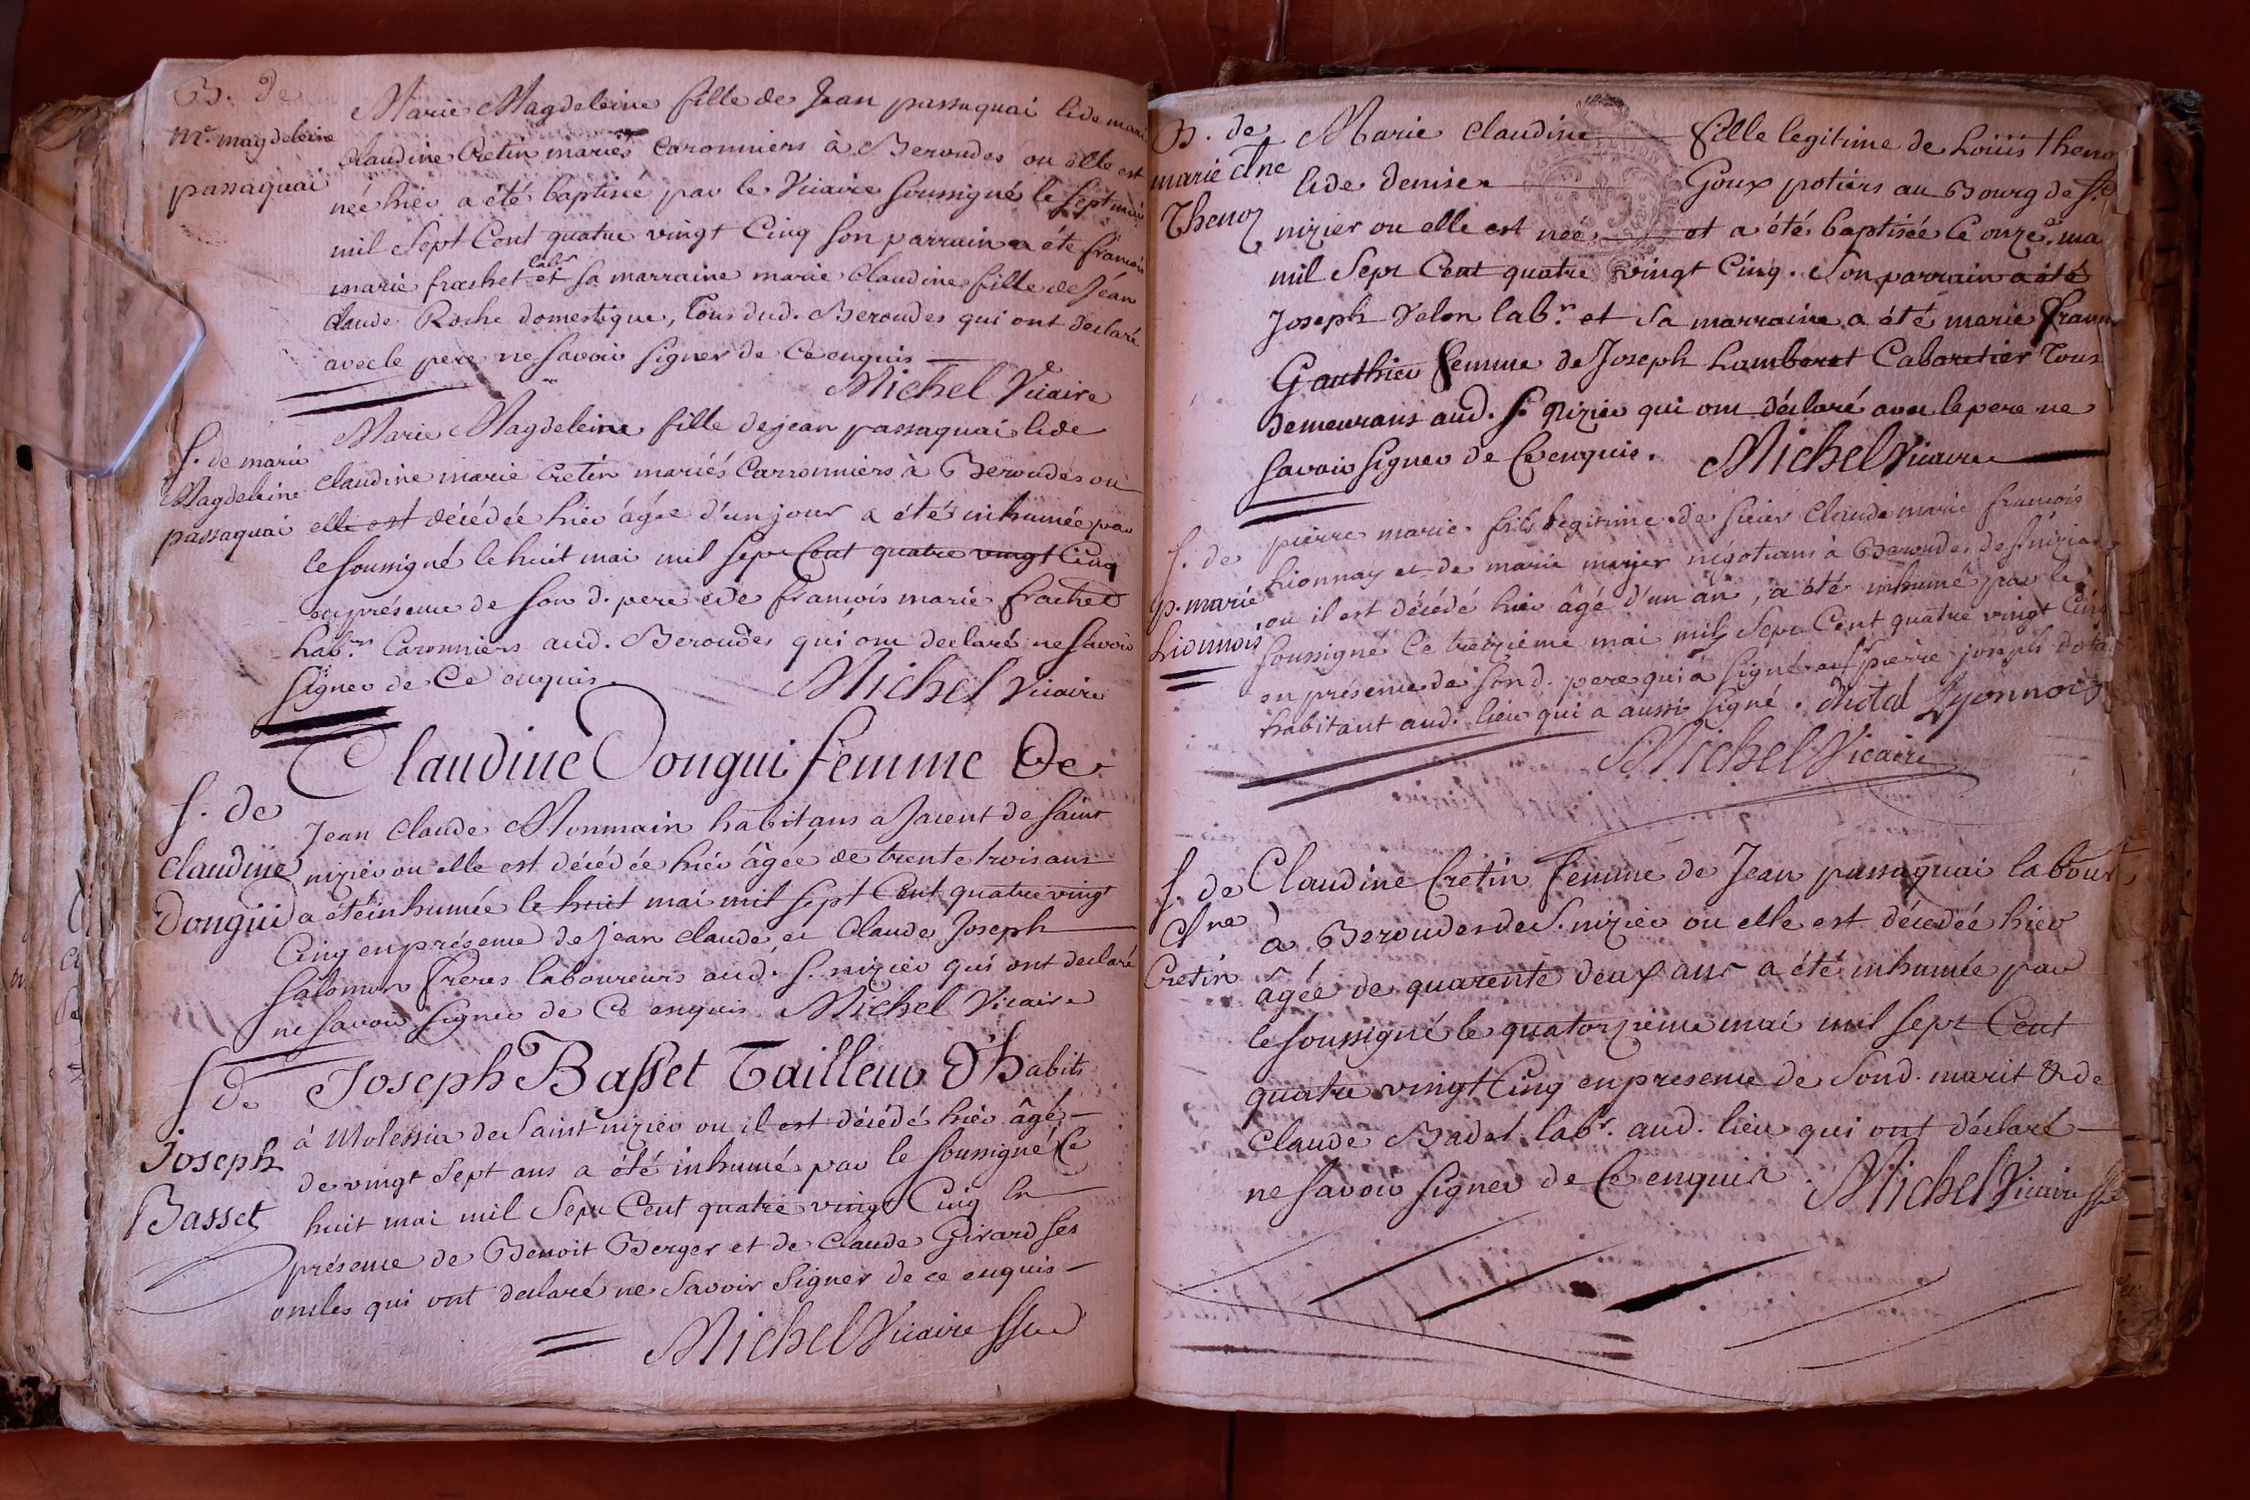 B. de
m.e magdeleine
passaquai
Marie Magdeleine fille de Jean passaquai & de marie
claudine Cretin mariés Caronniers à Beroudes ou elle est
née hier a été baptisée par le Vicaire soussigné le sept mai
mil sept Cent quatre vingt Cinq son parrain a été françois
marie frachet lab.r et sa marraine marie Claudine fille de Jean
claude Roche domestique, tous dud. Beroudes qui ont declaré
avec le pere ne savoir signer de Ce enquis
Michel Vicaire
S. de marie
Magdeleine
passaquai
Marie Magdeleine fille de jean passaquai & de
claudine marie Cretin mariés Carronniers à Beroudes ou
elle est décédée hier âgée d'un jour a été inhumée par
le soussigné le huit mai mil sept Cent quatre vingt Cinq
en présence de son d. pere & de françois marie frachet
hab.ns Caronniers aud. Beroudes qui ont declaré ne savoir
signer de Ce enquis.
Michel Vicaire
S. de
claudine
Dongui
Claudine Dongui femme De
Jean Claude Monmain habitans a Jacent de saint
nizier ou elle est décédée hier âgée de trente trois ans
a été inhumée le huit mai mil sept Cent quatre vingt
Cinq en présence de jean claude et Claude Joseph
salomon freres laboureurs aud. S. nizier qui ont declaré
ne savoir signer de Ce enquis Michel Vicaire
S de
Joseph
Basset
Joseph Basset Tailleur D'habits
à Molessia de Saint nizier ou il est décédé hier âgé
de vingt sept ans a été inhumé par le soussigné le
huit mai mil Sept Cent quatre vingt Cinq En
présence de Benoit Berger et de Claude Girard ses
oncles qui ont declaré ne Savoir Signer de ce enquis
Michel Vicaire
B. de
marie Cl.ne
Thenoz
Marie Claudine fille legitime de Loüis theno
& de denise Goux potiers au Bourg de S.t
nizier ou elle est née et a été baptisée le onze mai
mil Sept Cent quatre vingt Cinq. Son parrain a été
Joseph Velon lab.r et sa marraine a été marie fran
Gauthier femme de Joseph Lamberet Cabaretier tous
demeurans aud. S. Nizier qui ont déclaré avec le pere ne
savoir signer de Ce enquis. Michel Vicaire
S. de
p. marie
Lionnois
pierre marie fils legitime de sieur Claude marie françois
Lionnay et de marie négotians à Beroudes de S. nizier
ou il est décédé hier âgé d'un an, a été inhumé par le
soussigné le treizieme mai mil Sept Cent quatre vingt Cinq
en présence de son d. pere qui a signé et S.r pierre joseph
habitant aud. lieu qui a aussi signé. Lyonnois
Michel Vicaire
S. de
Cl.ne
Cretin
Claudine Cretin femme de Jean passaquai labour.r
à Beroudes de S. nizier ou elle est décedée hier
âgée de quarente deux ans a été inhumée par
le soussigné le quatorzieme mai mil sept Cent
quatre vingt Cinq en presence de Sond. marit & de
Claude Badet lab.r aud. lieu qui ont déclaré
ne savoir signer de Ce enquis. Michel Vicaire